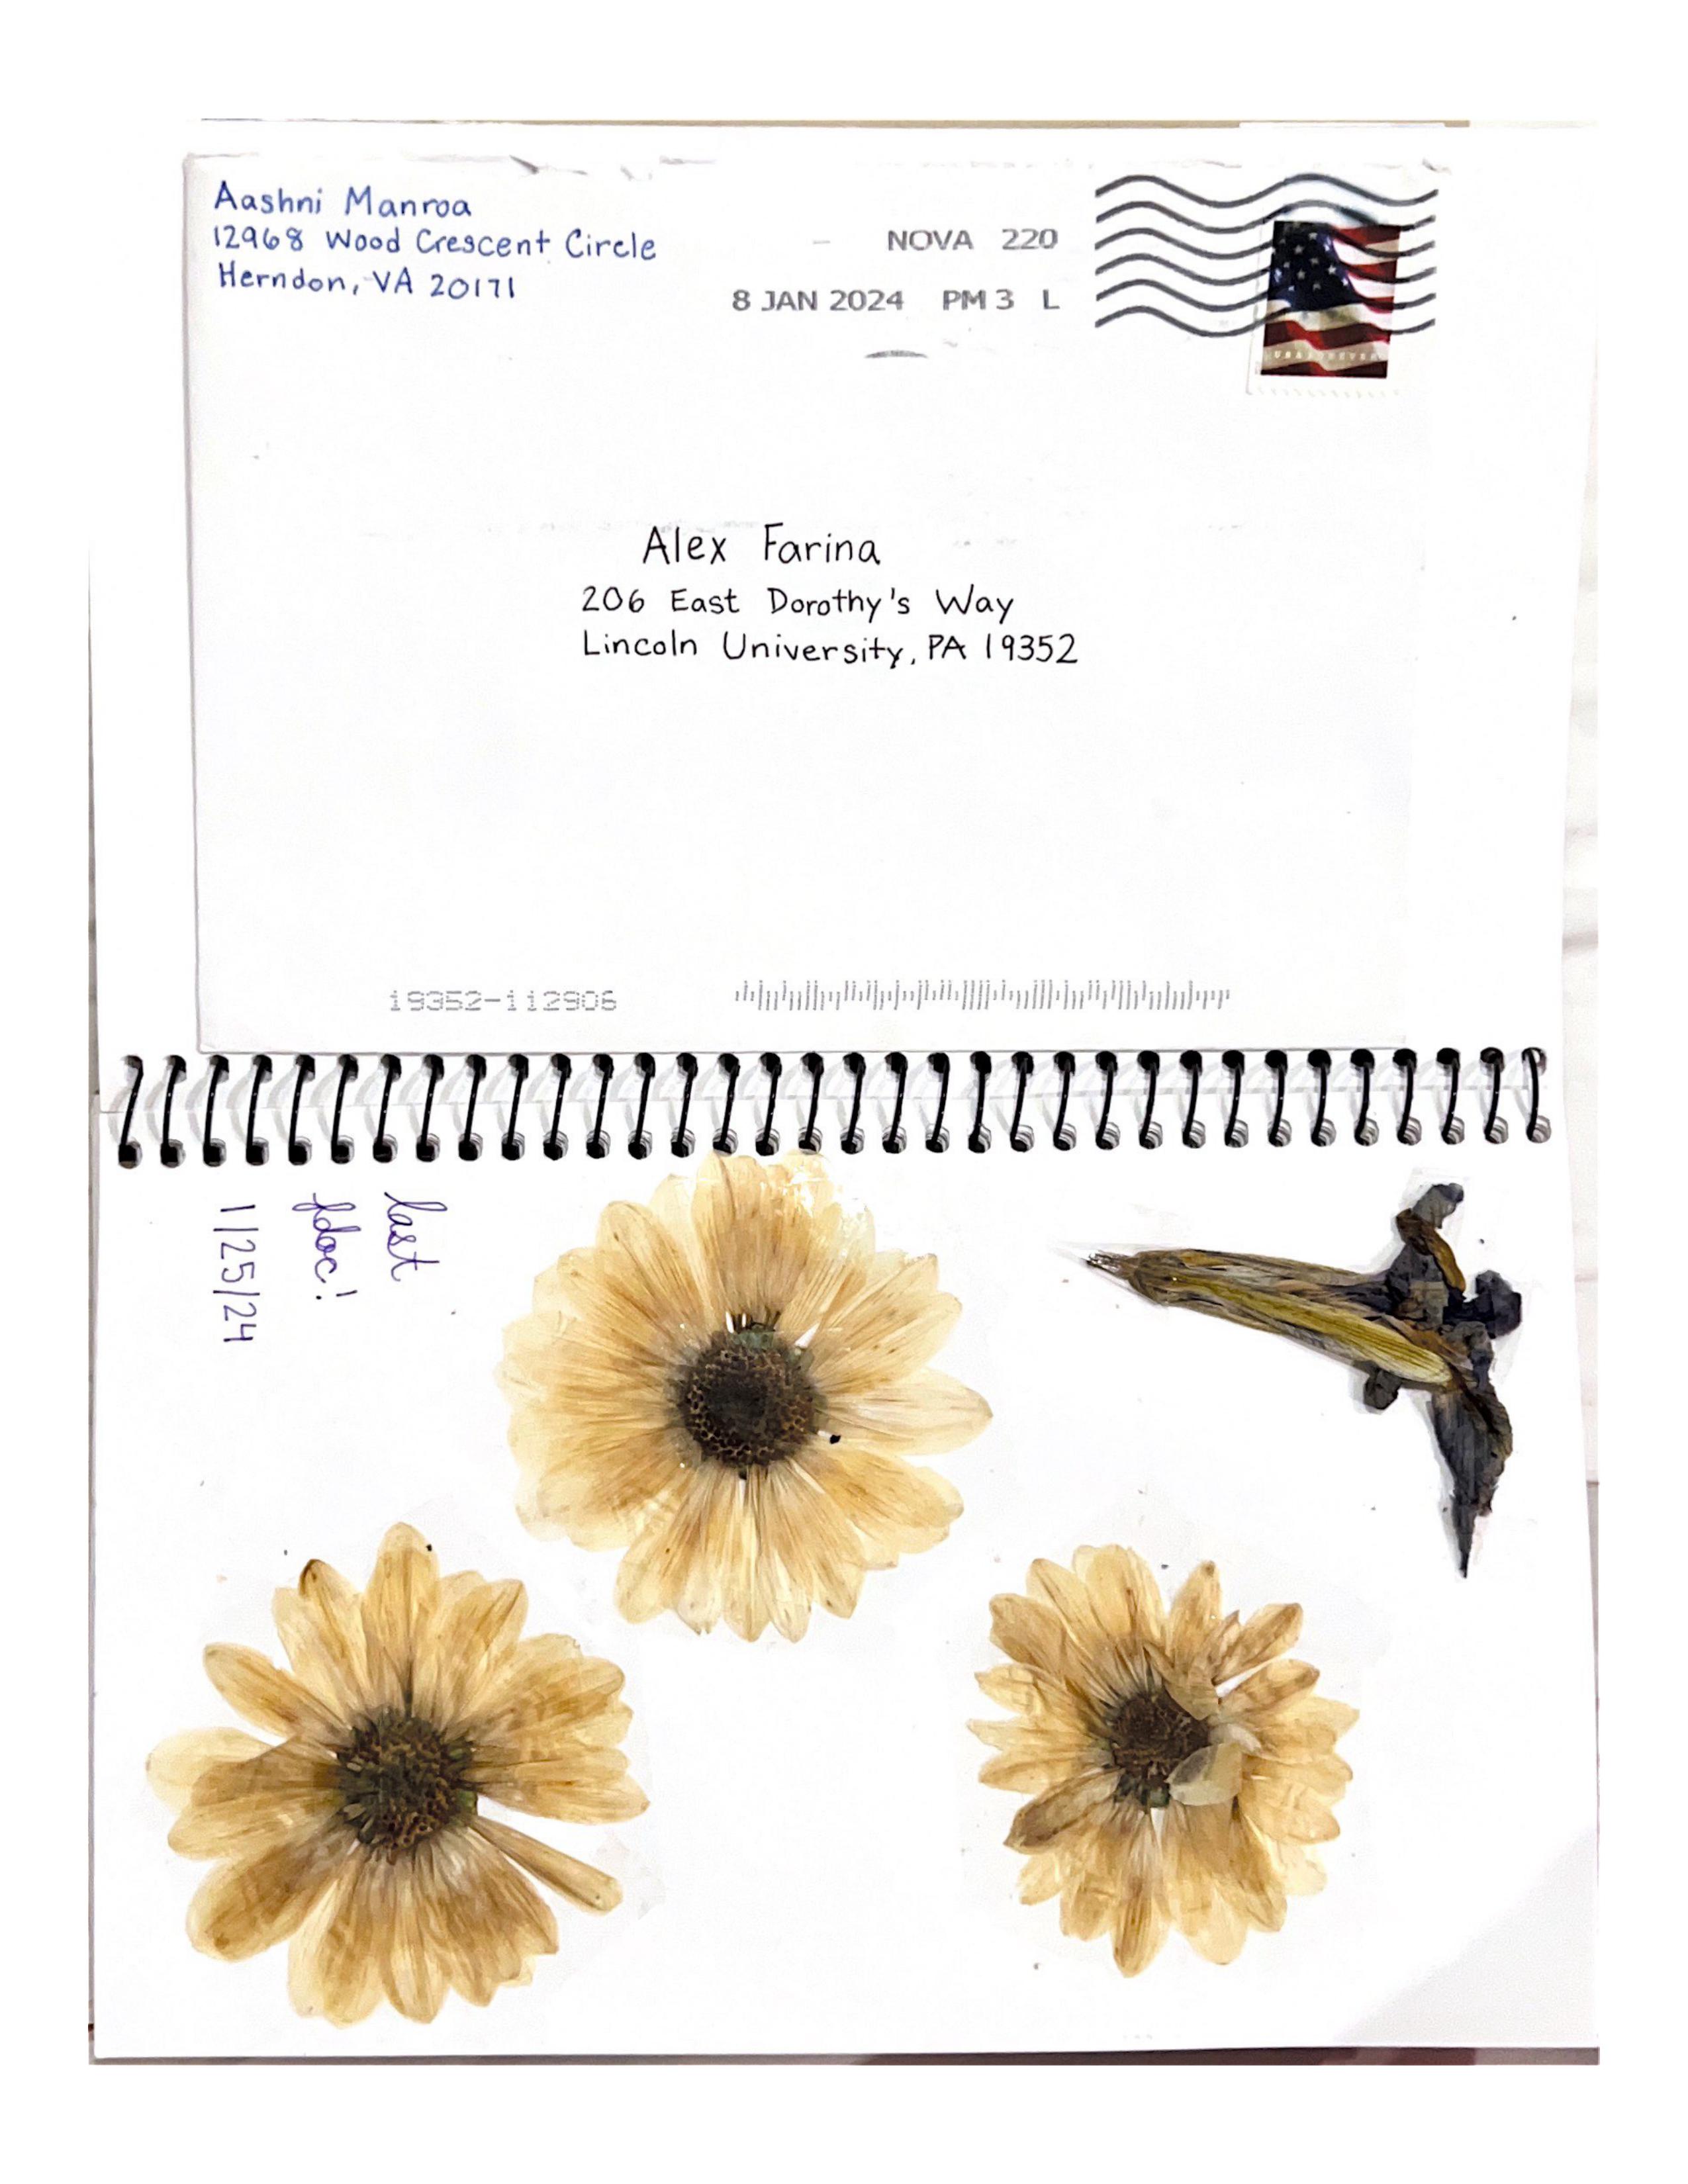 Aashni Manroa
12968 Wood Crescent Circle
Herndon, VA 20171
NOVA 220
8 JAN 2024 PM 3 L
Alex Farina
206 East Dorothy's Way
Lincoln University, PA 19352
19352-112906
last
fdoc!
1/25/24